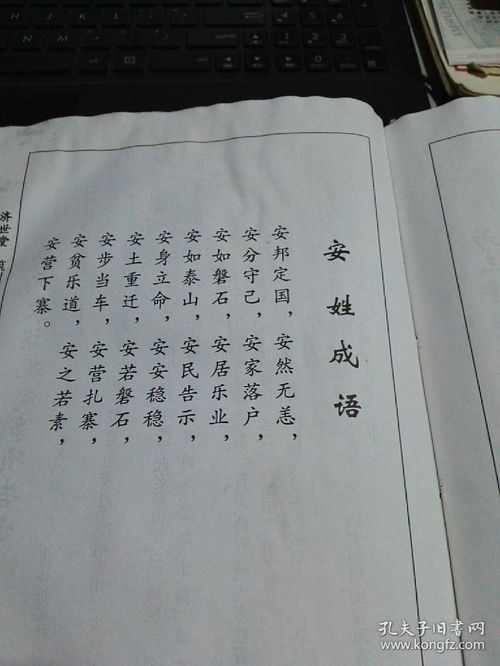 安姓成语
安邦定国，安然无恙，
安分守己，安家落户，
安如磐石，安居乐业，
安如泰山，安民告示，
安身立命，安安稳稳，
安土重迁，安若磐石，
安步当车，安营扎寨，
安贫乐道，安之若素，
安营下寨。
济世堂
孔夫子旧书网
www.kongfz.com